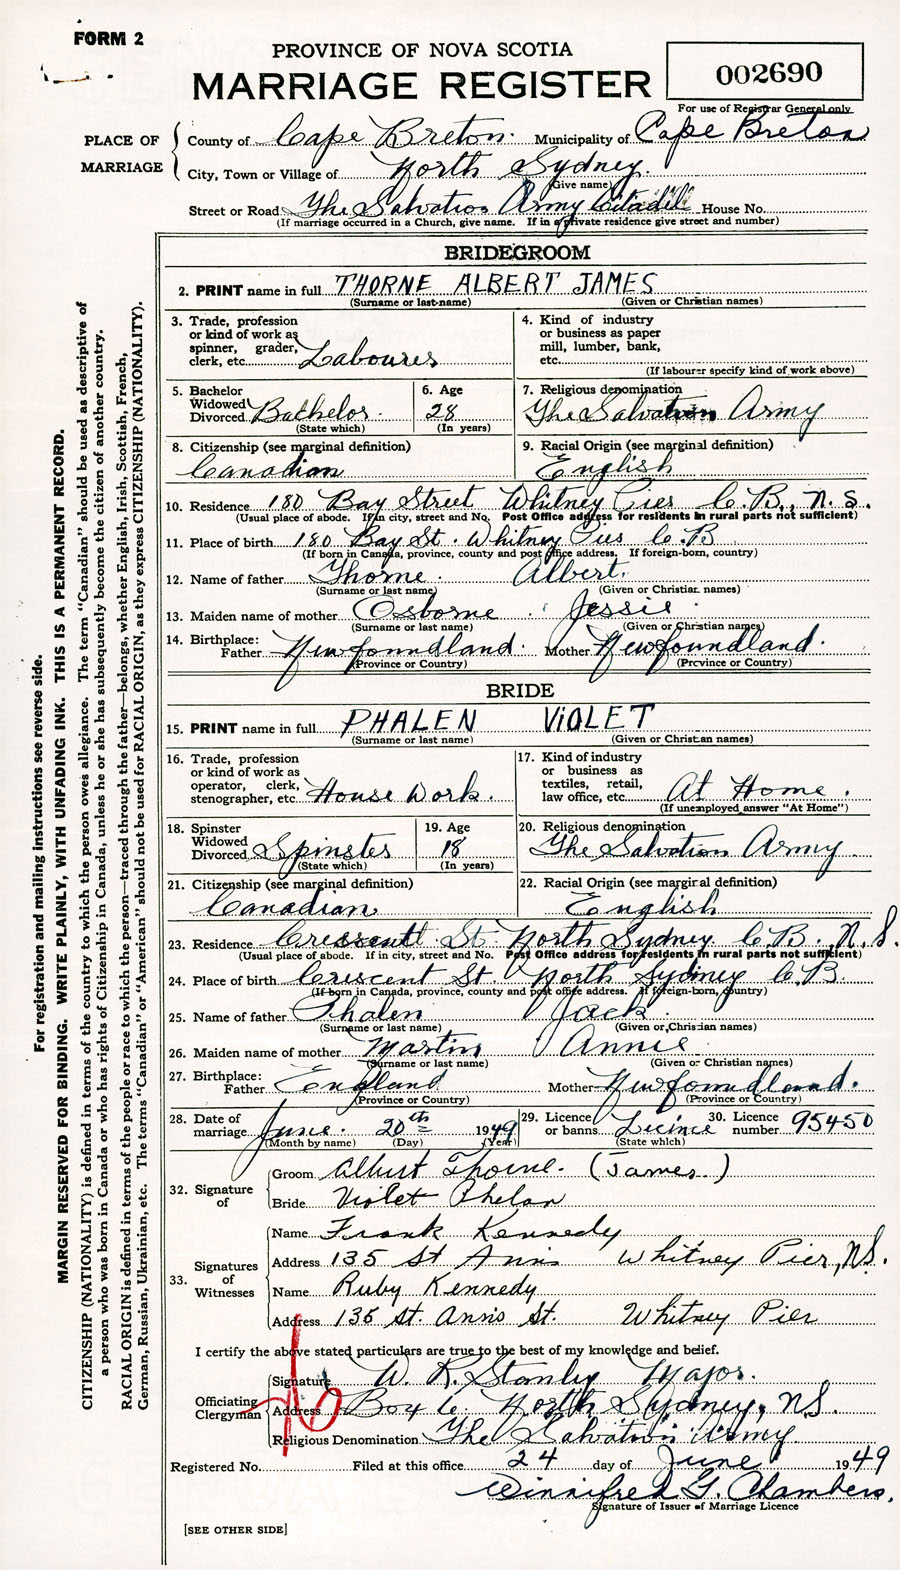 FORM 2
PROVINCE OF NOVA SCOTIA
MARRIAGE REGISTER
002690
For use of Registrar General only
PLACE OF MARRIAGE
County of Cape Breton. Municipality of Cape Breton
City, Town or Village of North Sydney.
(Give name)
Street or Road The Salvation Army Citadel House No.
(If marriage occurred in a Church, give name. If in a private residence give street and number)
BRIDEGROOM
2. PRINT name in full THORNE ALBERT JAMES
(Surname or last name) (Given or Christian names)
3. Trade, profession or kind of work as spinner, grader, clerk, etc. Labourer
4. Kind of industry or business as paper mill, lumber, bank, etc.
(If labourer specify kind of work above)
5. Bachelor Widowed Divorced Bachelor.
(State which)
6. Age 28
(In years)
7. Religious denomination The Salvation Army
8. Citizenship (see marginal definition) Canadian
9. Racial Origin (see marginal definition) English
10. Residence 180 Bay Street Whitney Pier C.B., N.S.
(Usual place of abode. If in city, street and No. Post Office address for residents in rural parts not sufficient)
11. Place of birth 180 Bay St. Whitney Pier C.B
(If born in Canada, province, county and post office address. If foreign-born, country)
12. Name of father Thorne. Albert.
(Surname or last name) (Given or Christian names)
13. Maiden name of mother Osborne Jessie
(Surname or last name) (Given or Christian names)
14. Birthplace: Father Newfoundland. Mother Newfoundland.
(Province or Country) (Province or Country)
BRIDE
15. PRINT name in full PHALEN VIOLET
(Surname or last name) (Given or Christian names)
16. Trade, profession or kind of work as operator, clerk, stenographer, etc House Work.
17. Kind of industry or business as textiles, retail, law office, etc. At Home.
(If unemployed answer "At Home")
18. Spinster Widowed Divorced Spinster
(State which)
19. Age 18
(In years)
20. Religious denomination The Salvation Army
21. Citizenship (see marginal definition) Canadian
22. Racial Origin (see marginal definition) English
23. Residence St North Sydney C.B. N.S.
(Usual place of abode. If in city, street and No. Post Office address for residents in rural parts not sufficient)
24. Place of birth Crescent St. North Sydney C.B.
(If born in Canada, province, county and post office address. If foreign-born, country)
25. Name of father Phalen Jack.
(Surname or last name) (Given or Christian names)
26. Maiden name of mother Martin Annie
(Surname or last name) (Given or Christian names)
27. Birthplace: Father England Mother Newfoundland.
(Province or Country) (Province or Country)
28. Date of marriage June. 20th 1949
(Month by name) (Day) (Year)
29. Licence or banns Licince
(State which)
30. Licence number 95450
32. Signature of
Groom Albert Thorne. (James)
Bride Violet Phelan
33. Signatures of Witnesses
Name Frank Kennedy
Address 135 St Anns Whitney Pier, N.S.
Name Ruby Kennedy
Address 135 St. Ann's St. Whitney Pier
I certify the above stated particulars are true to the best of my knowledge and belief.
Officiating Clergyman
Signature W. R. Stanley Major.
Address Box 6. North Sydney, N.S.
Religious Denomination The Salvation Army
Registered No. Filed at this office 24 day of June 1949
Winnifred G. Chambers.
Signature of Issuer of Marriage Licence
[SEE OTHER SIDE]
For registration and mailing instructions see reverse side.
MARGIN RESERVED FOR BINDING. WRITE PLAINLY, WITH UNFADING INK. THIS IS A PERMANENT RECORD.
CITIZENSHIP (NATIONALITY) is defined in terms of the country to which the person owes allegiance. The term "Canadian" should be used as descriptive of
a person who was born in Canada or who has rights of Citizenship in Canada, unless he or she has subsequently become the citizen of another country.
RACIAL ORIGIN is defined in terms of the people or race to which the person—traced through the father—belongs, whether English, Irish, Scottish, French,
German, Russian, Ukrainian, etc. The terms "Canadian" or "American" should not be used for RACIAL ORIGIN, as they express CITIZENSHIP (NATIONALITY).